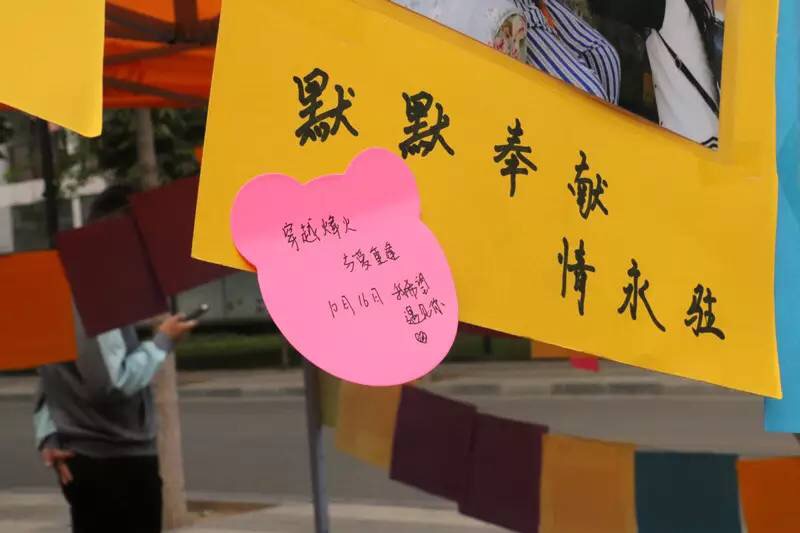 默默奉献
情永驻
穿越烽火
与爱重逢
10月16日 我希望
遇见你